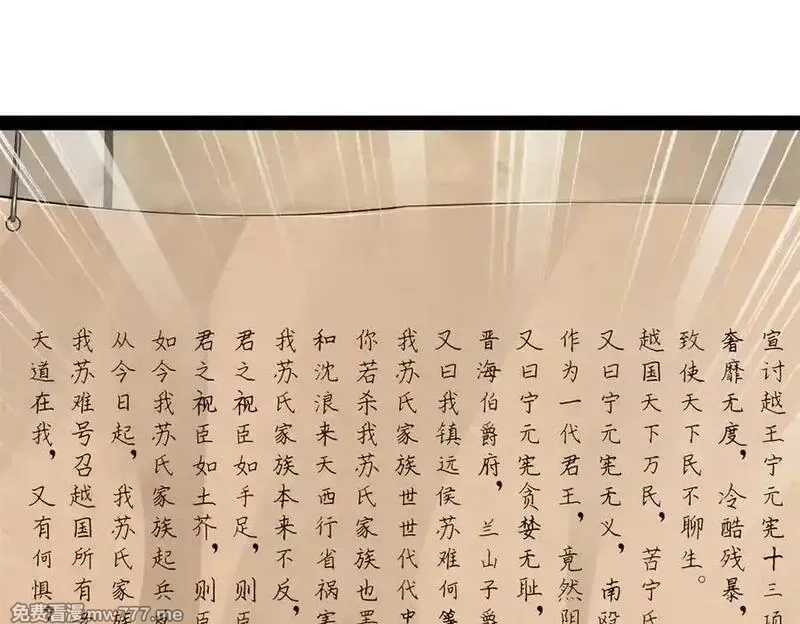 宣讨越王宁元宪十三项
奢靡无度，冷酷残暴，
致使天下民不聊生。
越国天下万民，苦宁氏
又曰宁元宪无义，南殴
作为一代君王，竟然阴
又曰宁元宪贪婪无耻，
晋海伯爵府，兰山子爵
又曰我镇远侯苏难何等
我苏氏家族世世代代忠
你若杀我苏氏家族也罢
和沈浪来天西行省祸害
我苏氏家族本来不反，
君之视臣如手足，则臣
君之视臣如土芥，则臣
如今我苏氏家族起兵
从今日起，我苏氏家族
我苏难号召越国所有
天道在我，又有何惧？
免费看漫.mw777.me